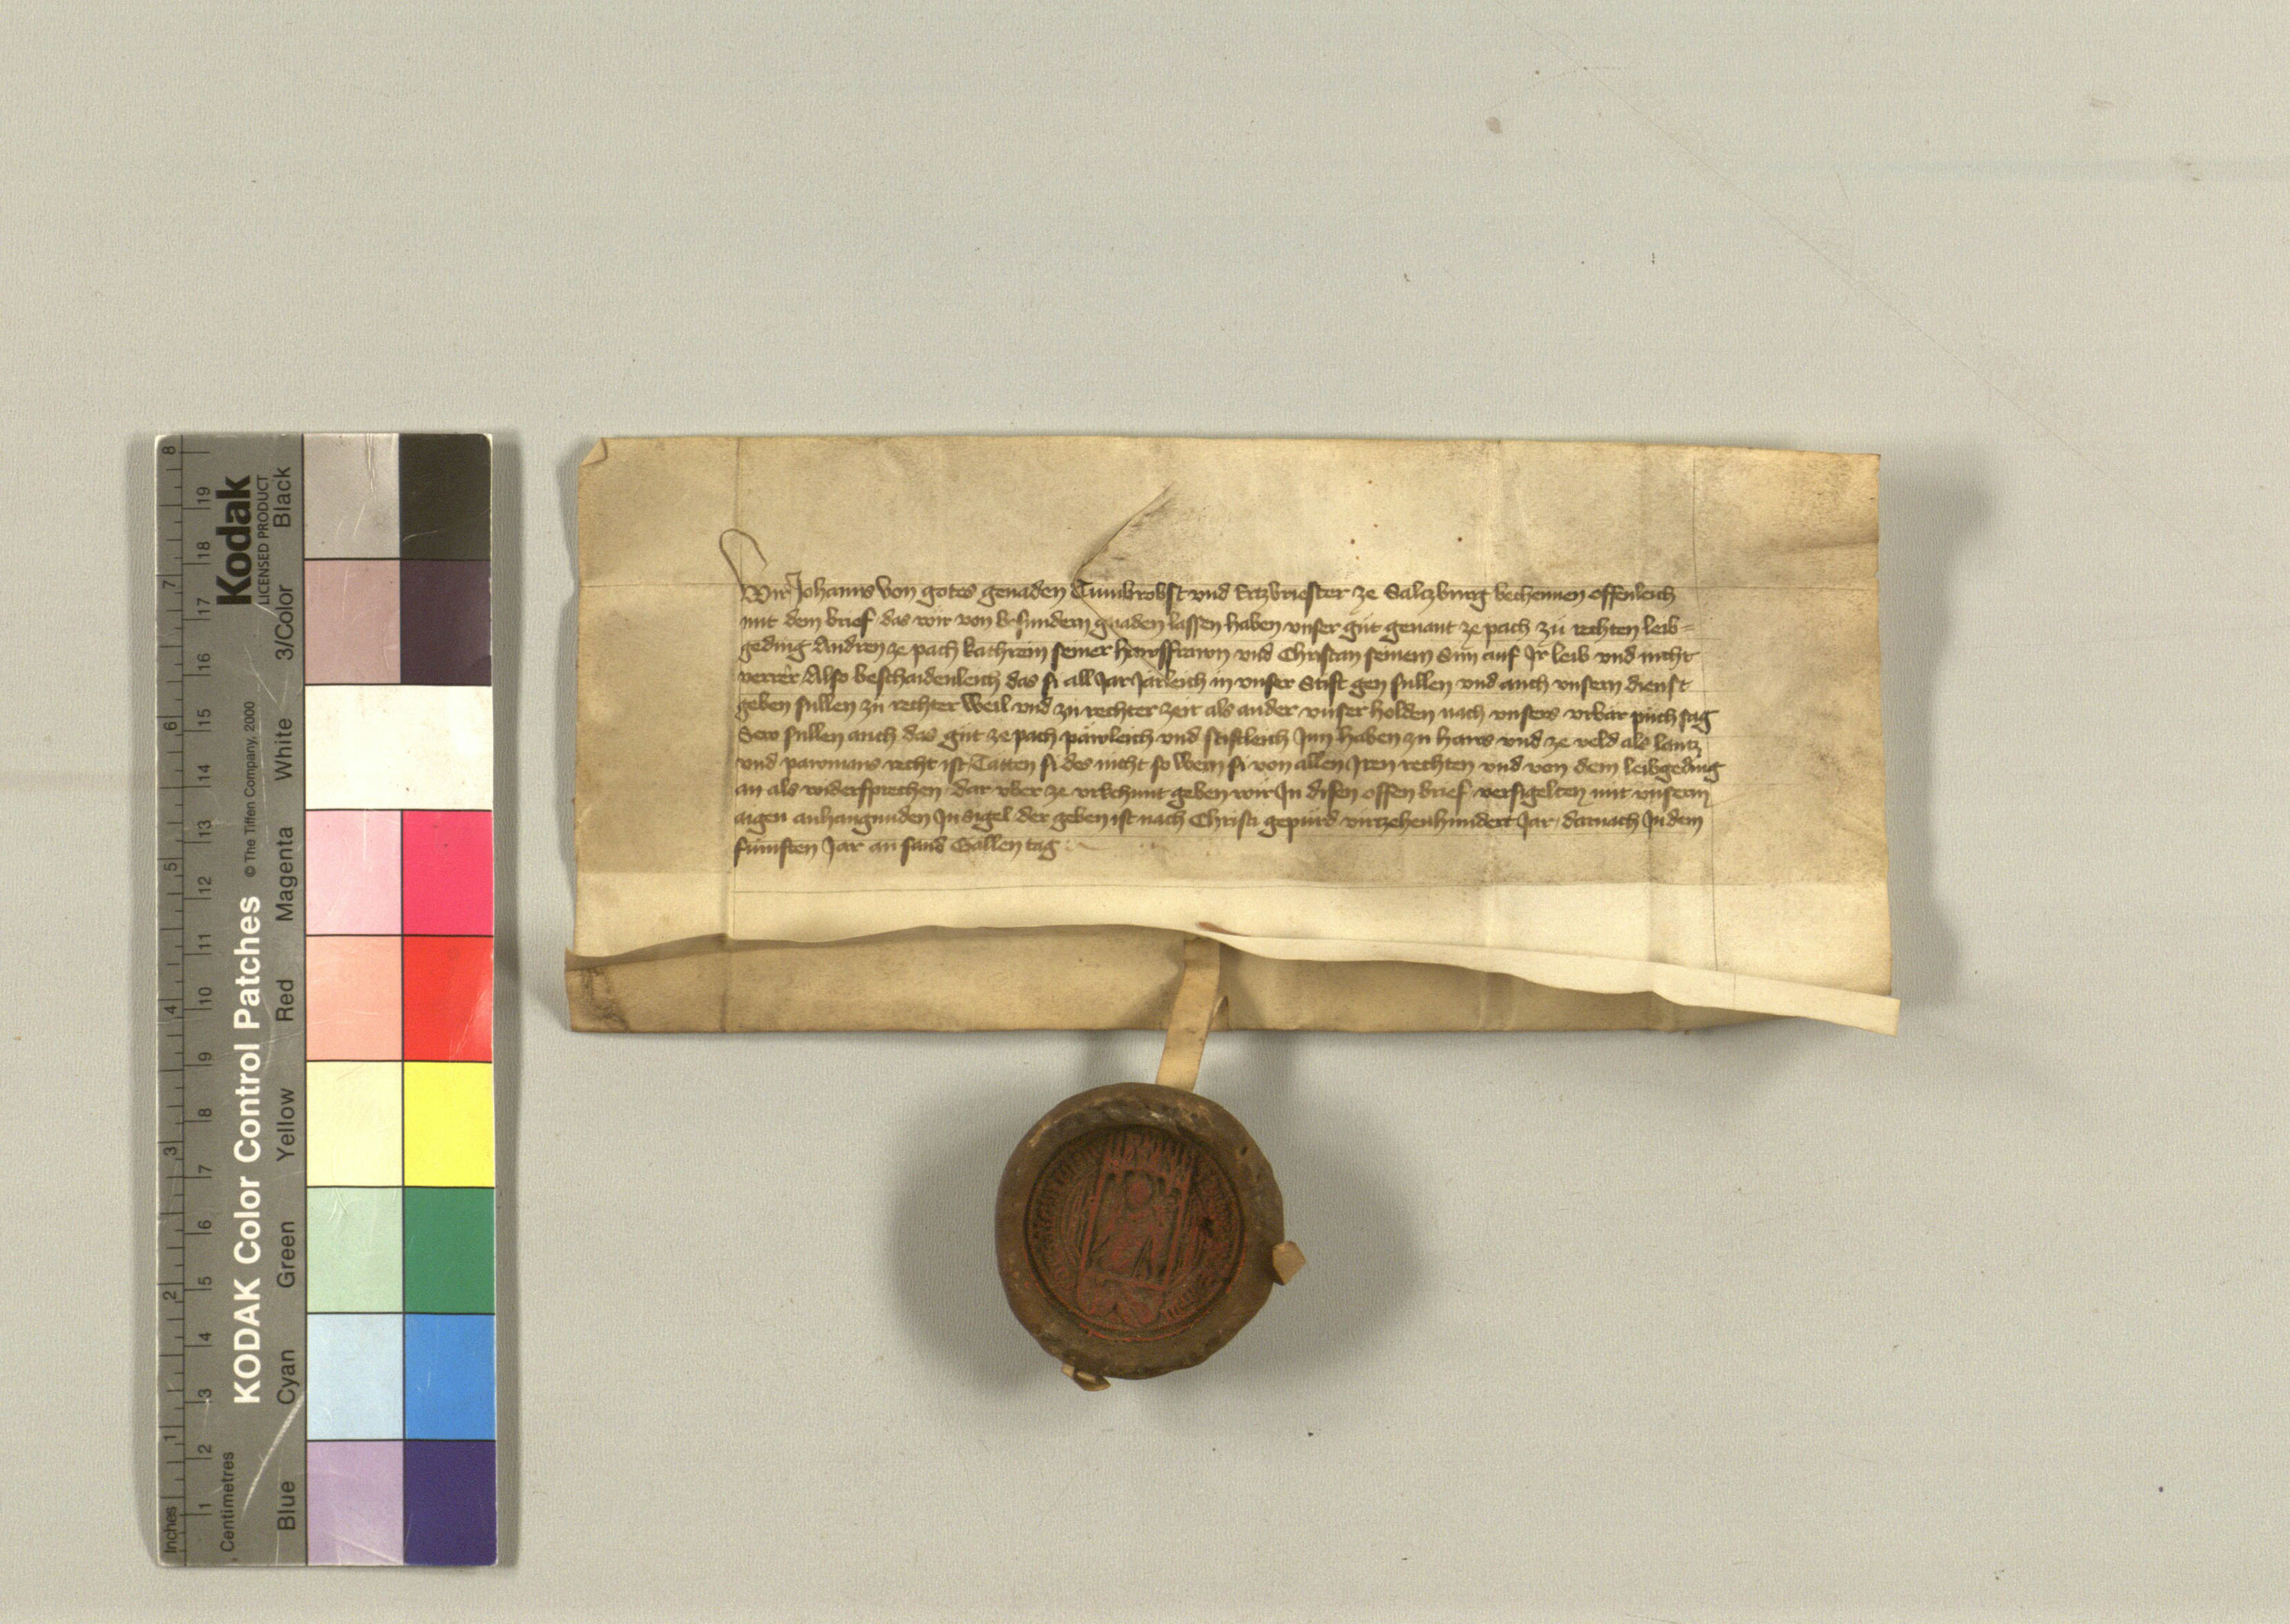 Wir Johanns von gotes genaden Tumbrobst vnd Ertzbriester ze Saltzburg bechennen offenleich
mit dem brief das wir von besundern gnaden lassen haben vnser gut genant ze pach zu rechten leib=
geding Andren ze pach kathrein seiner hawsfrawn vnd Christan seinem Sun auf Ir leib vnd nicht
verrer Also beschaidenleich das si all Jar Jarleich in vnser Stift gen sullen vnd auch vnsern dienst
geben sullen zu rechter weil vnd zu rechter zeit als ander vnser holden nach vnsers vrbar puch sag
Sew sullen auch das gut ze pach päwleich vnd stiftleich Inn haben zu haws vnd ze veld als lantz
vnd pawmans recht ist Tatten si des nicht so wern si von allen Iren rechten vnd von dem leibgeding
an als widersprechen dar vber ze vrkchunt geben wir In disen offen brief versigelten mit vnserm
aigen anhangunden Insigel der geben ist nach Christi gepurd virtzehenhundert Jar darnach In dem
fumften Jar an sand Gallen tag
KODAK Color Control Patches
© The Tiffen Company, 2000
Kodak
LICENSED PRODUCT
Inches
1 2 3 4 5 6 7 8
Centimetres
1 2 3 4 5 6 7 8 9 10 11 12 13 14 15 16 17 18 19
Blue Cyan Green Yellow Red Magenta White 3/Color Black